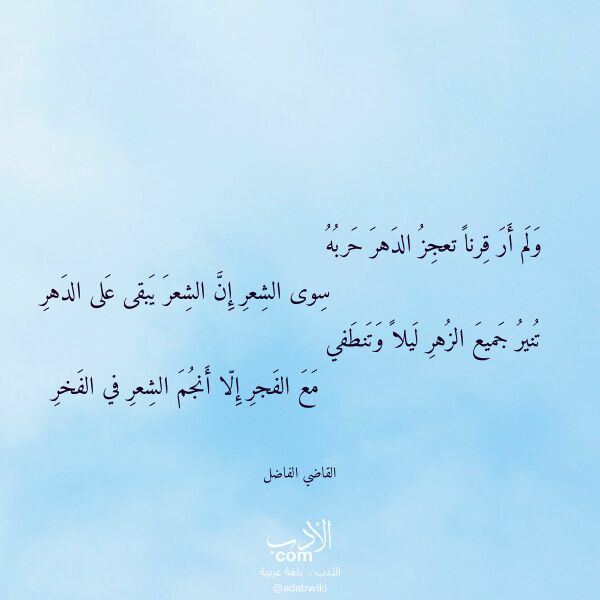 وَلَم أَرَ قِرناً تعجِزُ الدَهرَ حَربُهُ
سِوى الشِعرِ إِنَّ الشِعرَ يَبقى عَلى الدَهرِ
تُنيرُ جَميعَ الزُهرِ لَيلاً وَتَنطَفي
مَعَ الفَجرِ إِلّا أَنجُمَ الشِعرِ في الفَخرِ
القاضي الفاضل
الأدب
.com
الأدب .. بلغة عربية
@adabwiki